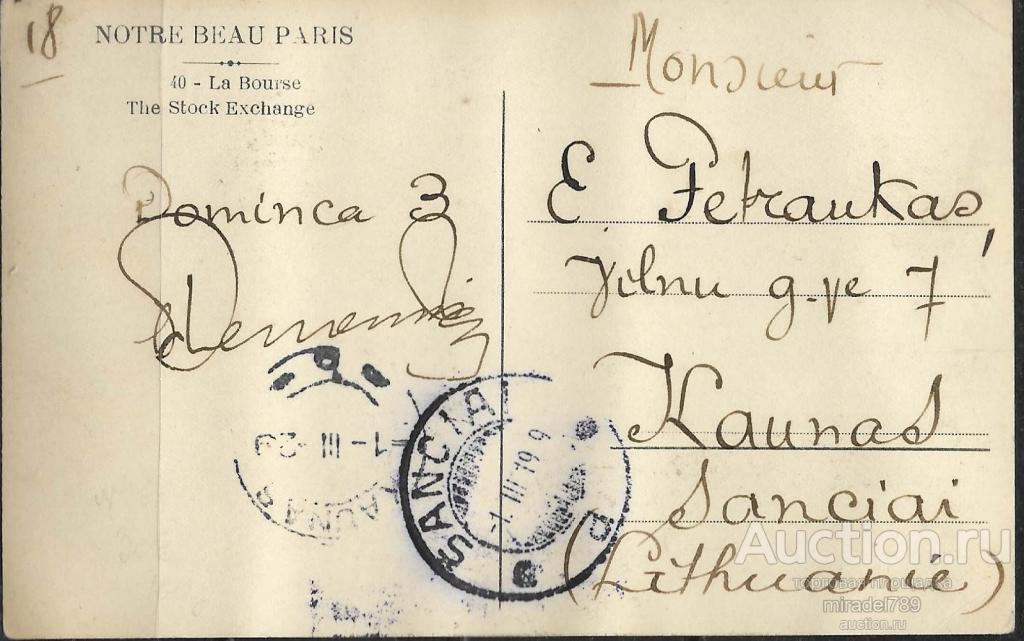 18
NOTRE BEAU PARIS
40 - La Bourse
The Stock Exchange
Dominca 3
Monsieur
E Petraukas,
Vilnu g-ve 7
Kaunas
Sanciai
(Lithuanie)
1-III-29
KAUNAS
ŠANČIAI
P
Auction.ru
торговая площадка
miradel789
auction.ru